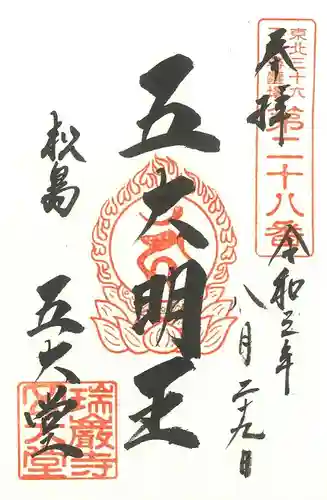 東北三十六
第二十八番
奉拝
令和五年
八月二十九日
五大明王
松島
五大堂
瑞巖寺
五大堂